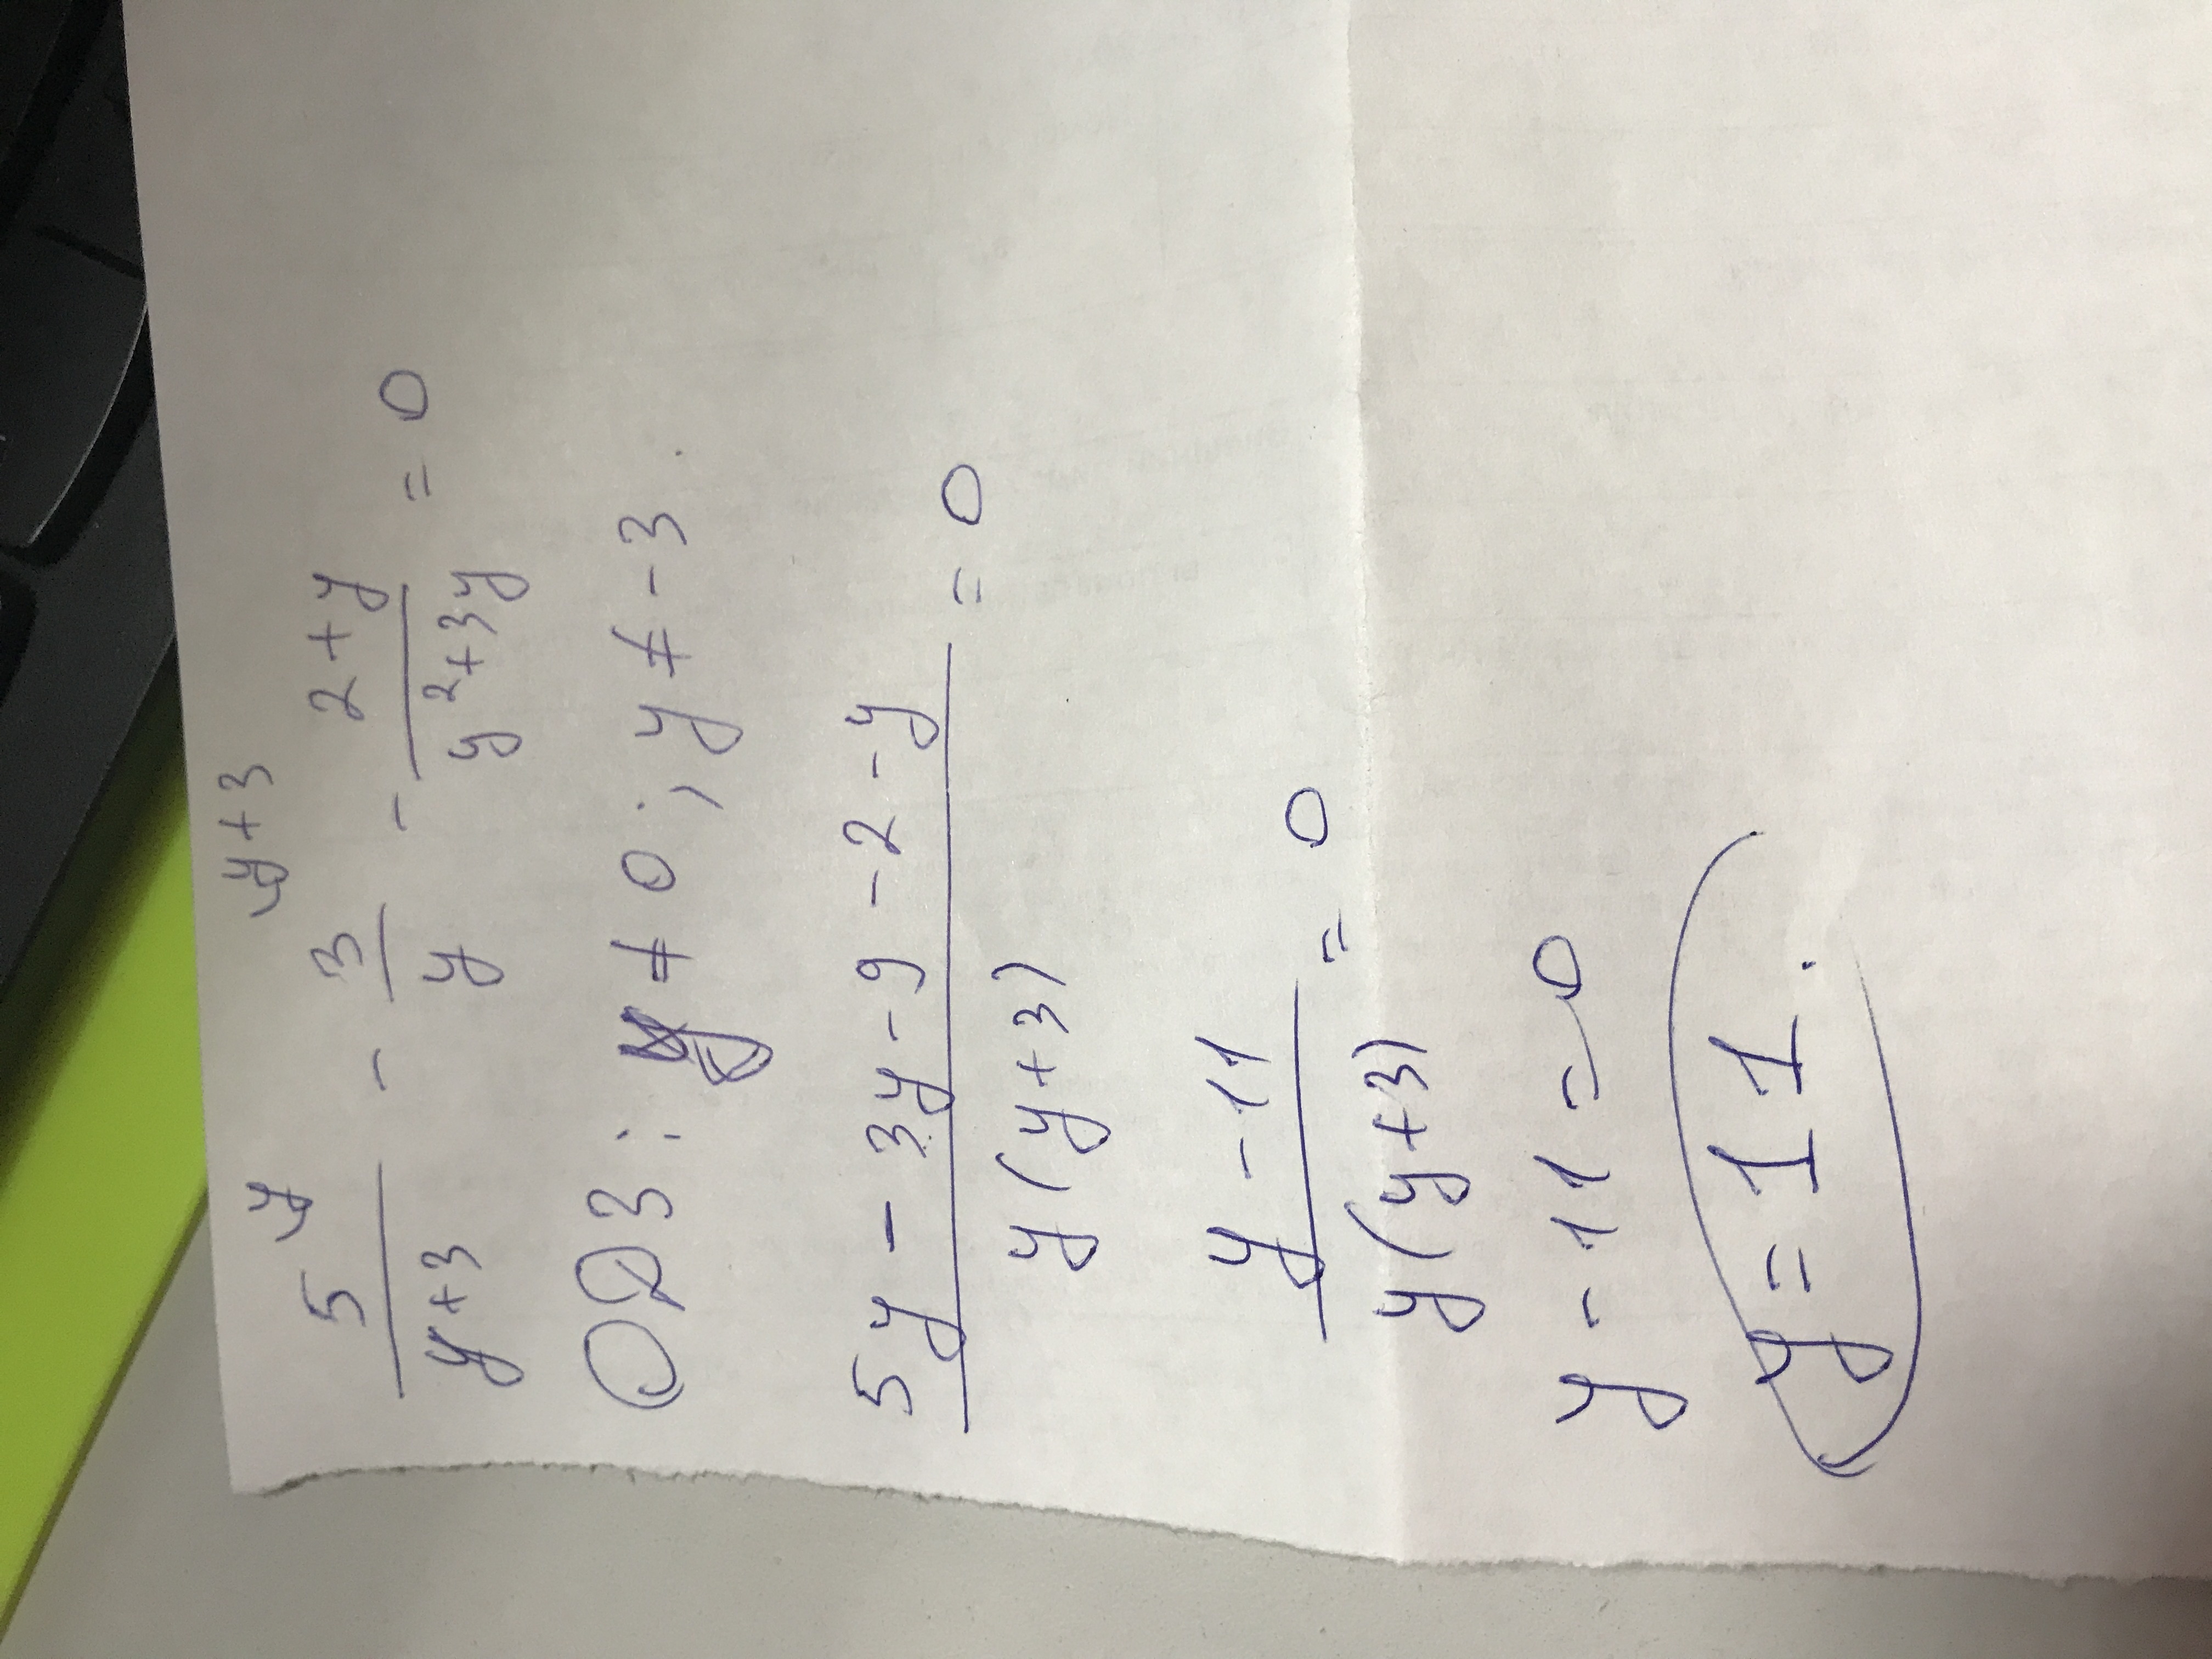 5\y / (y+3) - 3\y+3 / y - (2+y) / (y²+3y) = 0
ОДЗ: y ≠ 0; y ≠ -3.
(5y - 3y - 9 - 2 - y) / (y(y+3)) = 0
(y - 11) / (y(y+3)) = 0
y - 11 = 0
y = 11.